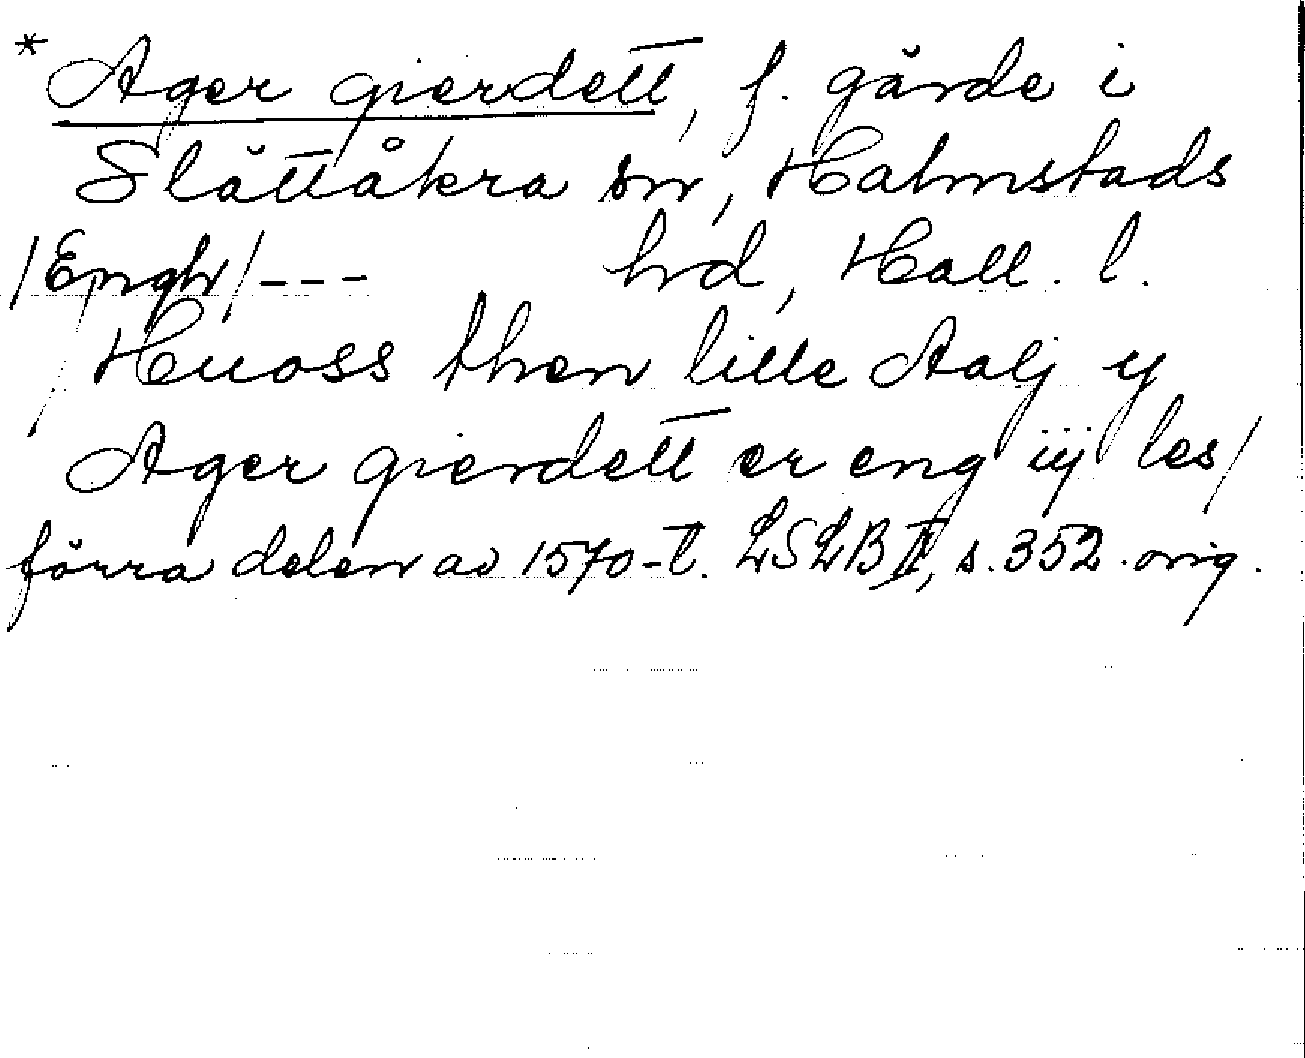 *Ager gierdett, f. gärde i
Slättåkra sn, Halmstads
/Engh/--- hd, Hall. l.
/Huoss then lille Aalj y
Ager gierdett er eng iij les/
förra delen av 1570-t. LSLB II, s. 352. orig.